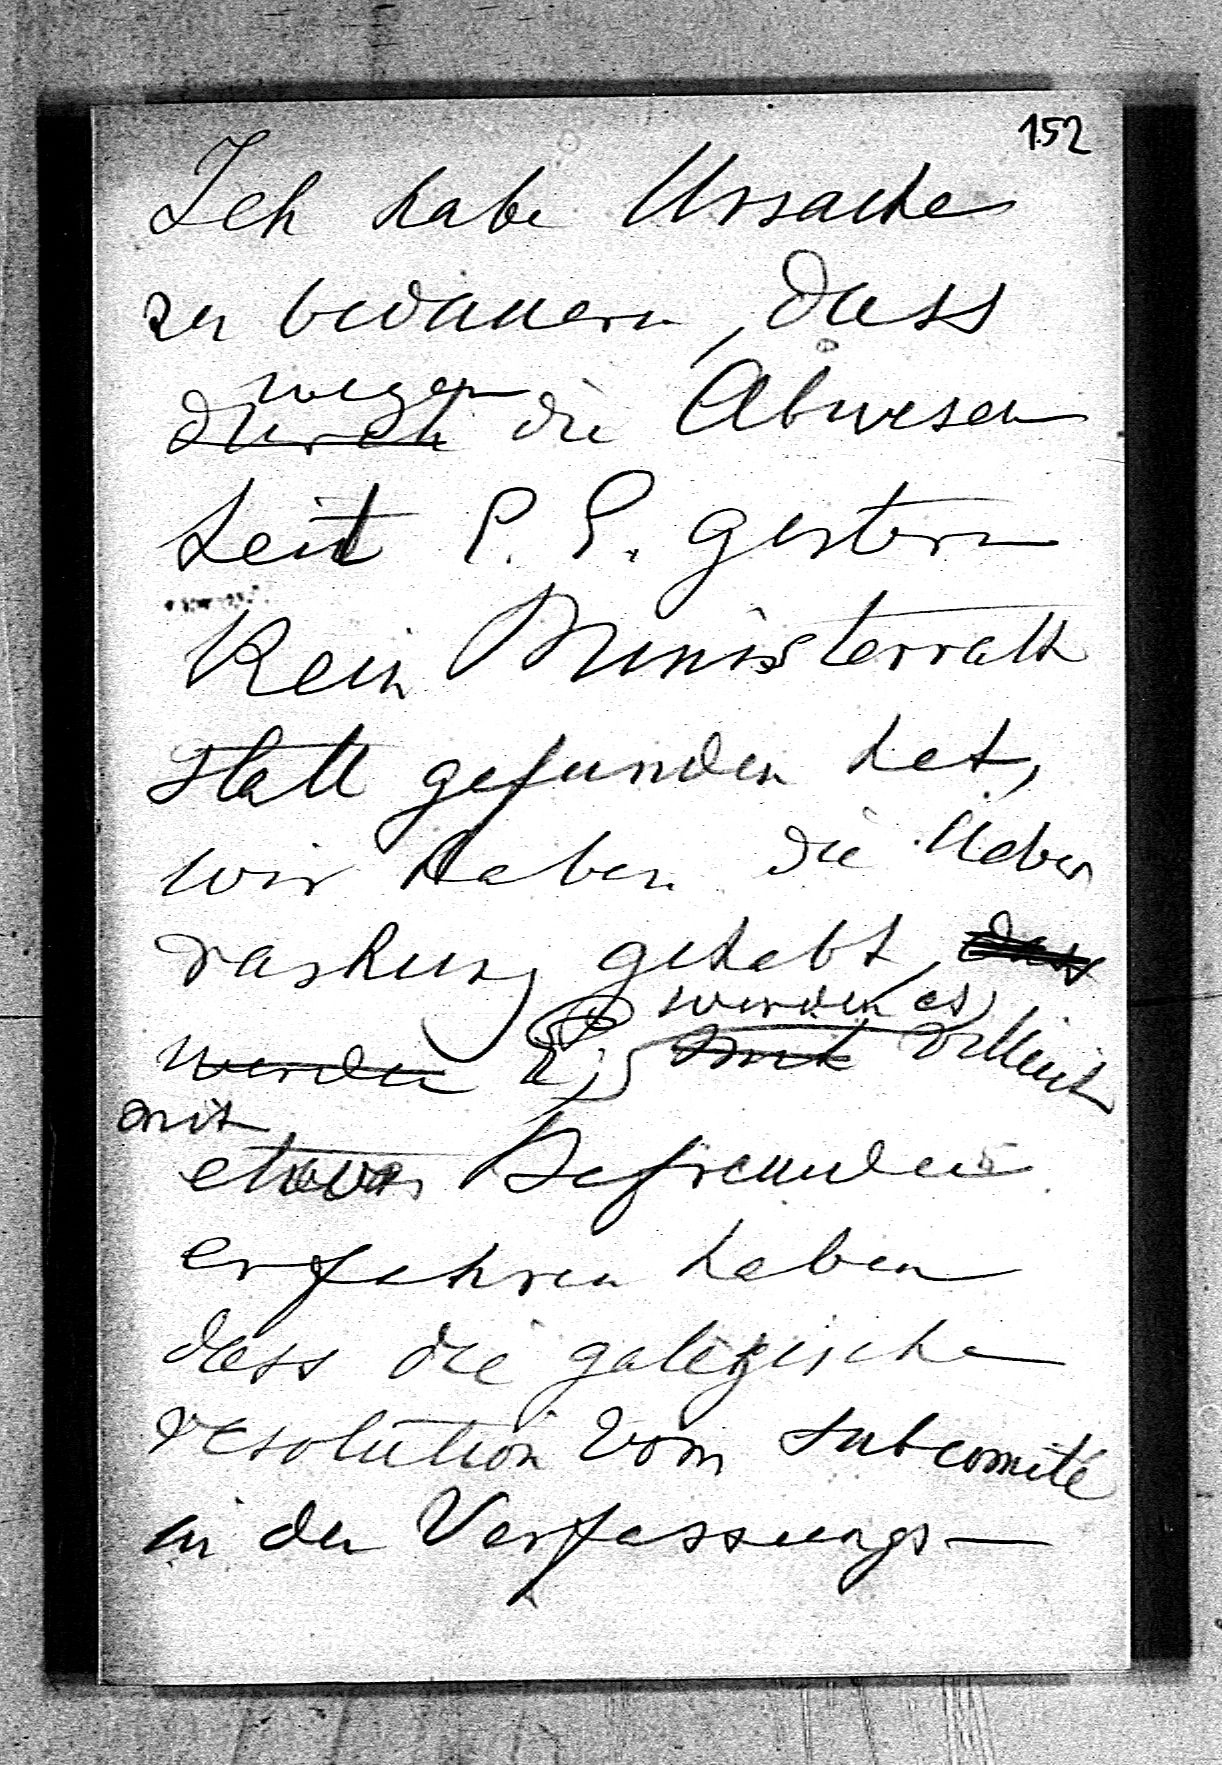 152
Ich habe Ursache
zu bedauern, dass
wegen
durch die Abwesen
heit P. P. gestern
Kein Ministerrath
statt gefunden hat,
wir haben die Ueber
raschung gehabt, dass
werden es
werden mit vielleicht
mit
etwas Befremden
erfahren haben
dass die galizische
resolution vom subcomité
in der Verfassungs-